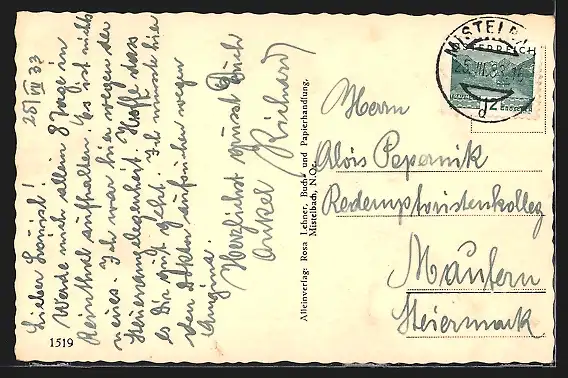 25/VII 33
Lieber Louisl!
Werde mich allein 8 Tage in
Reinthal aufhalten. Es ist nichts
neues. Ich war hier wegen der
Steuerangelegenheit. Hoffe dass
es Dir gut geht. Ich muss hier
den Doktor aufsuchen wegen
Angina.
Herzlichst grüsst Dich
Onkel Richard
1519
Alleinverlag: Rosa Lehner, Buch- und Papierhandlung,
Mistelbach, N.Ö.
MISTELB
ÖSTERREICH
12
GROSCHEN
Herrn
Alois Papernik
Redemptoristenkolleg
Mautern
Steiermark